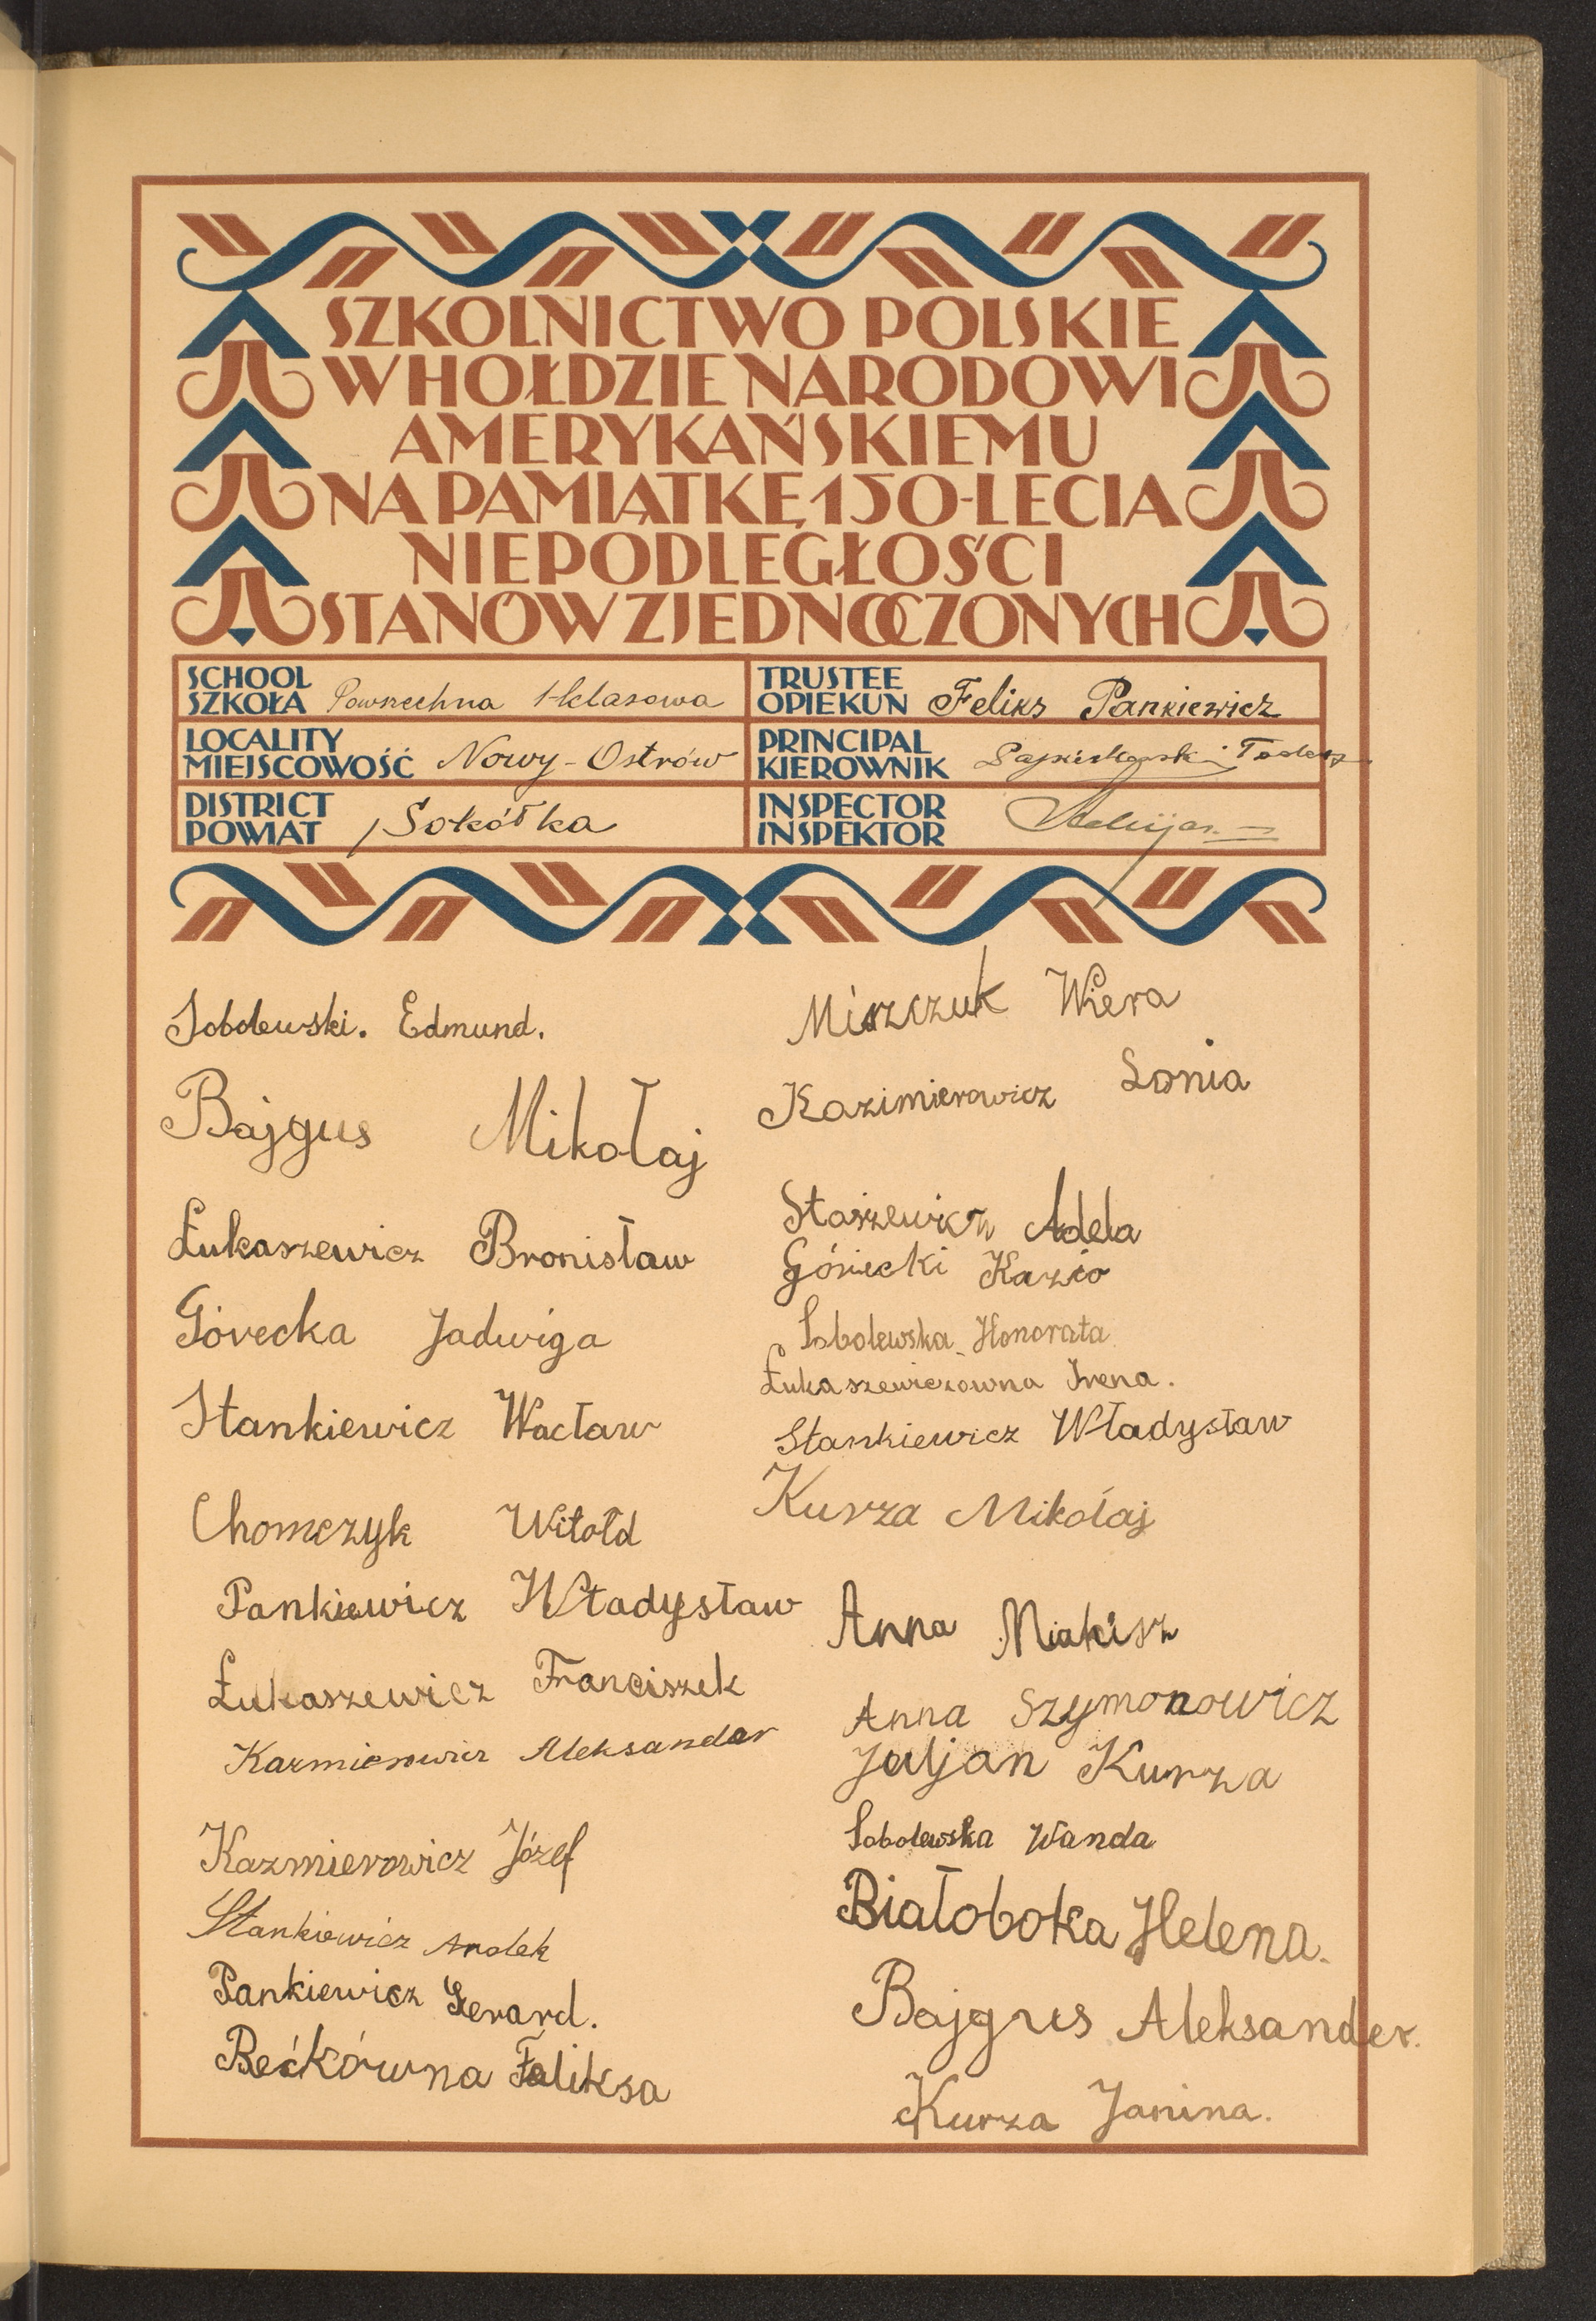 SZKOLNICTWO POLSKIE
W HOŁDZIE NARODOWI
AMERYKAŃSKIEMU
NA PAMIĄTKĘ 150-LECIA
NIEPODLEGŁOŚCI
STANÓW ZJEDNOCZONYCH
SCHOOL
SZKOŁA Powszechna 1-klasowa
TRUSTEE
OPIEKUN Feliks Pankiewicz
LOCALITY
MIEJSCOWOŚĆ Nowy-Ostrów
PRINCIPAL
KIEROWNIK
DISTRICT
POWIAT Sokółka
INSPECTOR
INSPEKTOR
Sobolewski. Edmund.
Bajgus Mikołaj
Łukaszewicz Bronisław
Górecka Jadwiga
Stankiewicz Wacław
Chomczyk Witołd
Pankiewicz Władysław
Łukaszewicz Franciszek
Kazmierowicz Aleksander
Kazmierowicz Józef
Stankiewicz Anolek
Pankiewicz Gerard.
Bećkówna Faliksa
Miszczuk Wiera
Kazimierowicz Sonia
Staszewicz Adela
Górecki Kazio
Sobolewska Honorata
Łukaszewiczowna Irena.
Stankiewicz Władysław
Kurza Mikołaj
Anna Miakisz
Anna Szymonowicz
Juljan Kurza
Sobolewska Wanda
Białoboka Helena.
Bajgus Aleksander.
Kurza Janina.